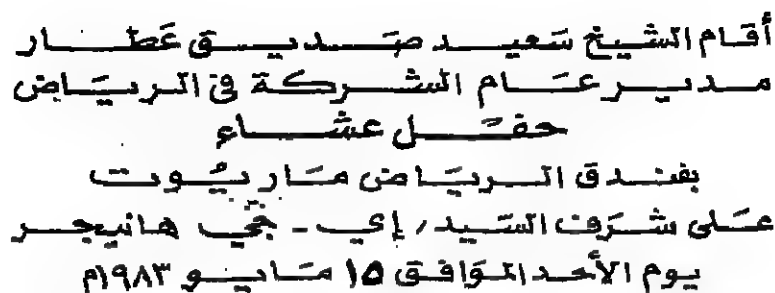 أقام الشيخ سَعيد صَديق عَطار
مدير عَام الشركة في الريَاض
حفَل عشاء
بفندق الريَاض مَاريُوت
عَلى شَرَف السَيد / إي - جي هانيجر
يوم الأحد الموَافق ١٥ مَايو ١٩٨٣م